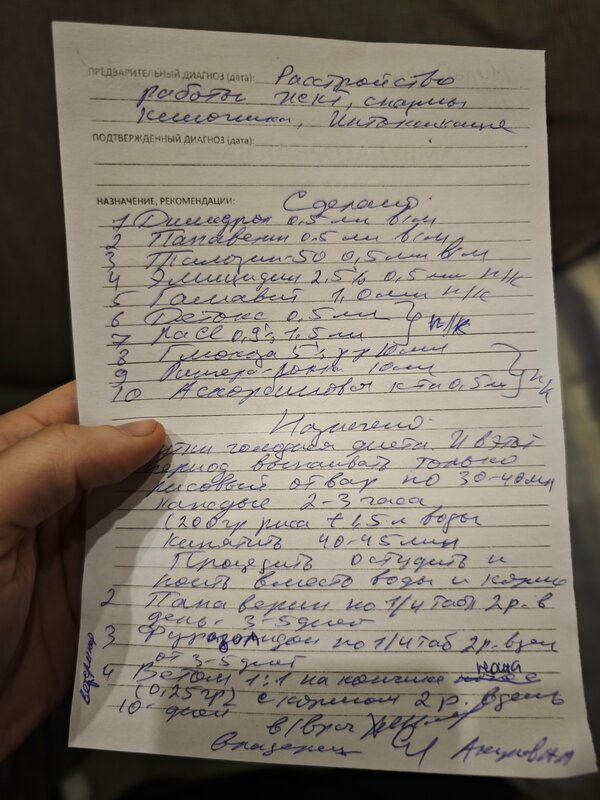 ПРЕДВАРИТЕЛЬНЫЙ ДИАГНОЗ (дата): Расстройство
работы жкт, спазмы
кишечника, Интоксикация
ПОДТВЕРЖДЁННЫЙ ДИАГНОЗ (дата):
НАЗНАЧЕНИЕ, РЕКОМЕНДАЦИИ: Сделано:
1 Димедрол 0.5 мл в/м
2 Папаверин 0.5 мл в/м
3 Тилозин-50 0,5 мл в/м
4 Эмицидин 2,5% 0,5 мл п/к
5 Гамавит 1,0 мл п/к
6 Детокс 0,5 мл
7 NaCl 0,9% 1,5 мл п/к
8 Глюкоза 5% р-р 10 мл
9 Рингера-Локка 10 мл
10 Аскорбиновая к-та 0,5 мл п/к
Назначено:
сутки голодная диета. И в этот
период выпаивать только
рисовый отвар по 30-40 мл
каждые 2-3 часа
(200 гр риса + 1,5 л воды
кипятить 40-45 мин
Процедить остудить и
поить вместо воды и корма
2 Папаверин по 1/4 табл 2 р. в
день - 3-5 дней
3 Фуразолидон по 1/4 таб 2 р. в день
от 3-5 дней
4 Ветом 1:1 на кончике ножа
(0,25 гр) с кормом 2 р. в день
10 дней
в/врач
Владелец